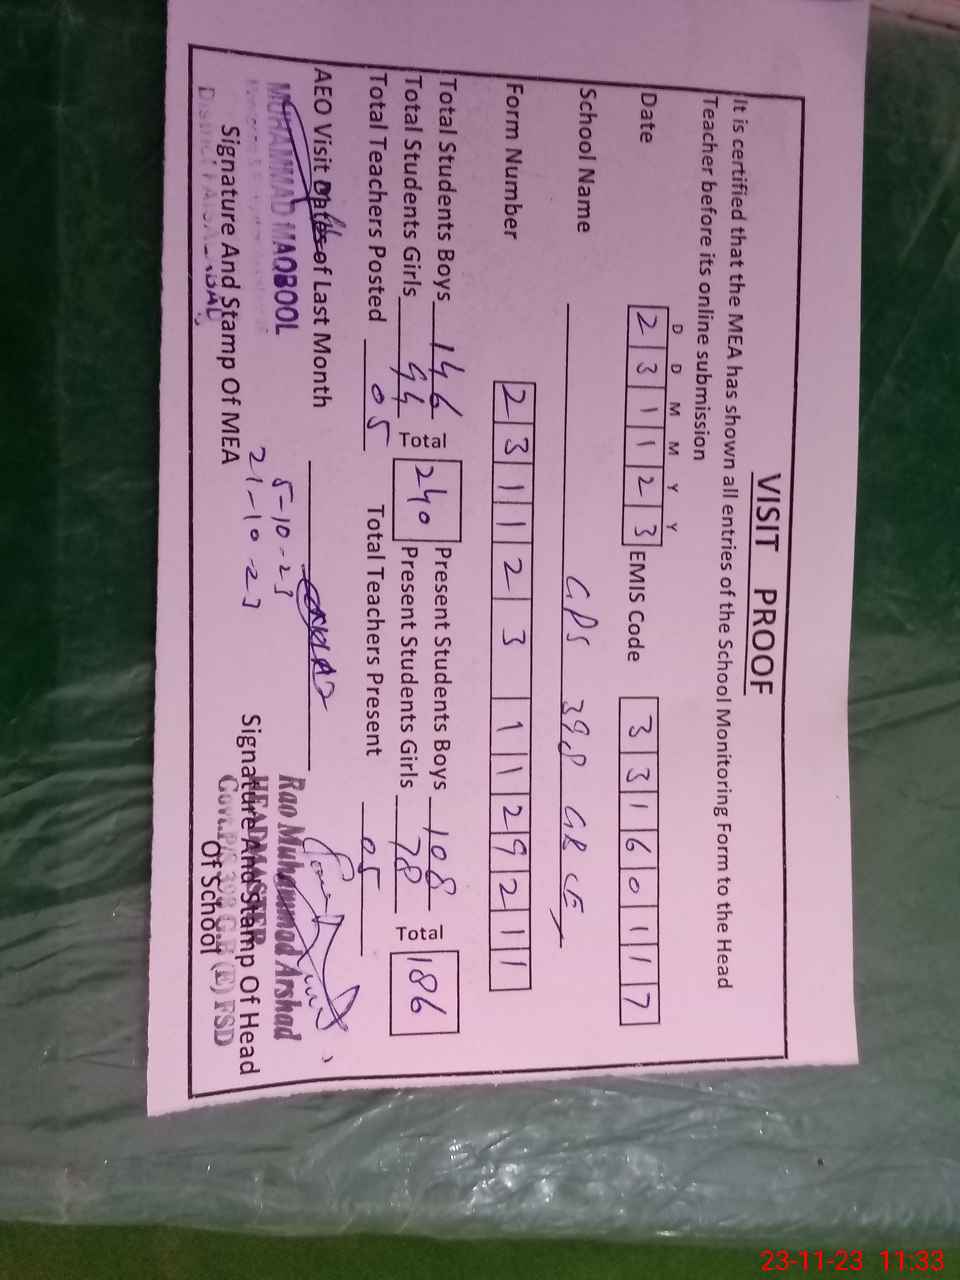 VISIT PROOF
It is certified that the MEA has shown all entries of the School Monitoring Form to the Head
Teacher before its online submission
D D M M Y Y
Date 2 3 1 1 2 3 EMIS Code 3 3 1 6 0 1 1 7
School Name GPS 398 GB
Form Number 2 3 1 1 2 3 1 1 2 9 2 1 1
Total Students Boys 146 Total 240 Present Students Boys 108 Total 186
Total Students Girls 94 Present Students Girls 78
Total Teachers Posted 05 Total Teachers Present 05
AEO Visit Dates of Last Month
5-10-23
21-10-23
MUHAMMAD MAQBOOL
Signature And Stamp Of MEA
Rao Muhammad Arshad
HEADMASTER
Govt.P/S 398 G.B (E) FSD
Signature And Stamp Of Head
Of School
23-11-23 11:33